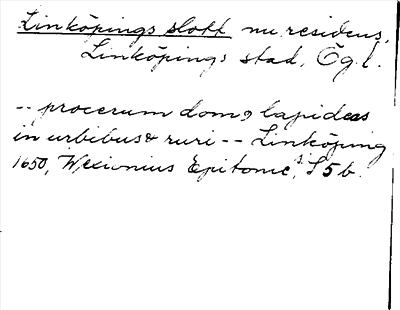 Linköpings slott nu residens,
Linköpings stad, Ög. l.
-- procerum domꝯ lapideas
in urbibus & ruri -- Linköping
1650, Wexionius Epitome, S 5 b.